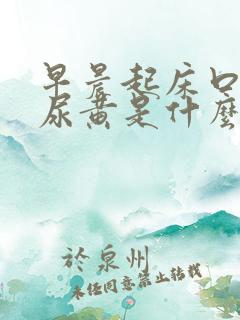 早晨起床口
尿黄是什麼
於泉州
未经同意禁止转载